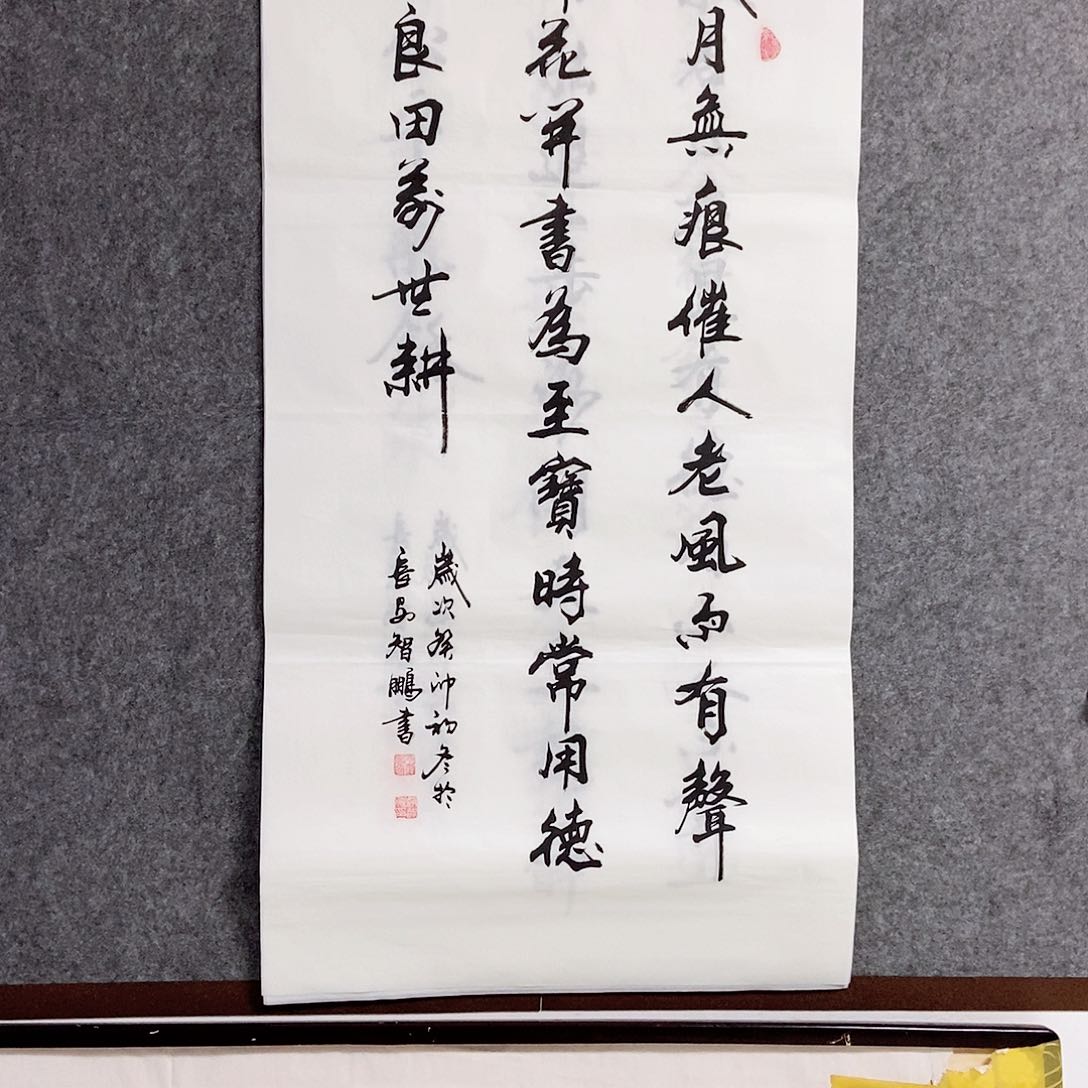 月無痕催人老風雨有聲
花開書為至寶時常用德
良田萬世耕
歲次癸卯初冬於
長安智鵬書